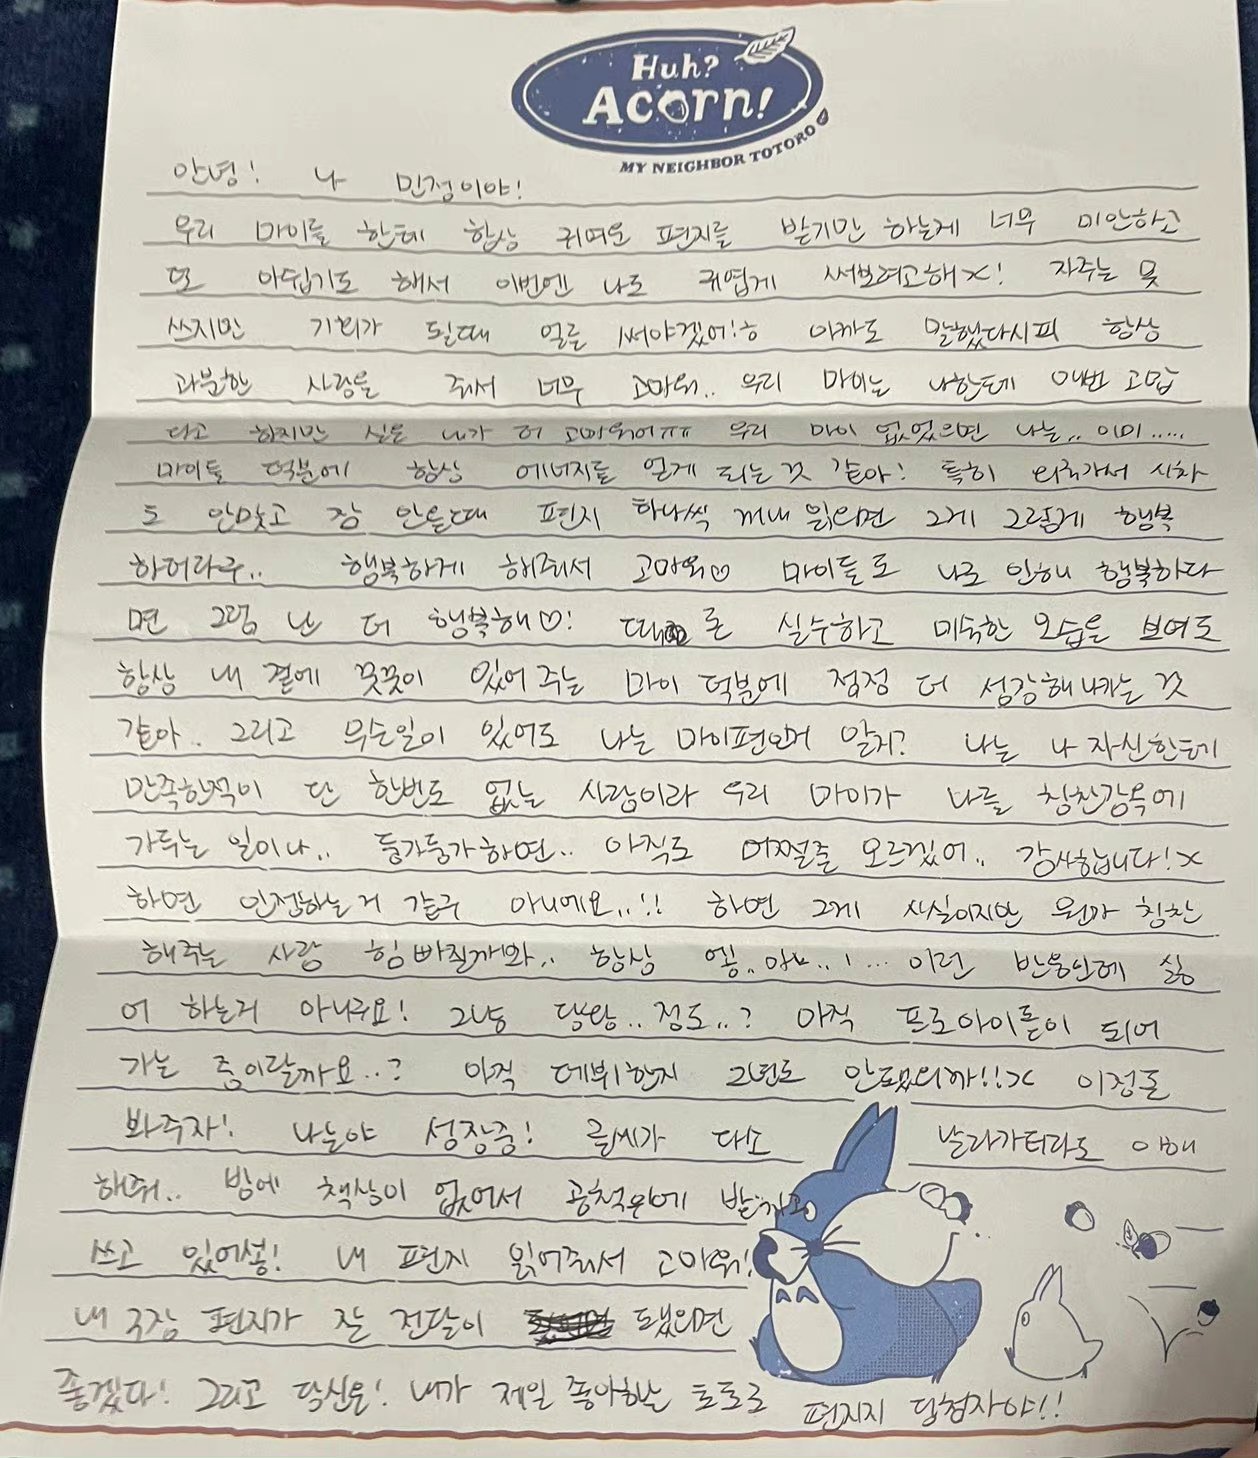 Huh?
Acorn!
MY NEIGHBOR TOTORO
안녕! 나 민정이야!
우리 마이들 한테 항상 귀여운 편지를 받기만 하는게 너무 미안하고
또 아쉽기도 해서 이번엔 나도 귀엽게 써보려고해x! 자주는 못
쓰지만 기회가 될때 얼른 써야겠어!ㅎ 아까도 말했다시피 항상
과분한 사랑을 줘서 너무 고마워.. 우리 마이는 나한테 매번 고맙
다고 하지만 실은 내가 더 고마워어ㅠㅠ 우리 마이 없었으면 나는.. 이미.....
마이들 덕분에 항상 에너지를 얻게 되는것 같아! 특히 외국가서 시차
도 안맞고 잠 안올때 편지 하나씩 꺼내 읽으면 그게 그렇게 행복
하더라구.. 행복하게 해줘서 고마워♡ 마이들도 나로 인해 행복하다
면 그럼 난 더 행복해♡! 때론 실수하고 미숙한 모습을 보여도
항상 내 곁에 꿋꿋이 있어주는 마이 덕분에 점점 더 성장해나가는 것
같아. 그리고 무슨일이 있어도 나는 마이편인거 알지? 나는 나 자신한테
만족한적이 단 한번도 없는 사람이라 우리 마이가 나를 칭찬감옥에
가두는 일이나.. 둥가둥가하면.. 아직도 어쩔줄 모르겠어.. 감사합니다!x
하면 인정하는거 같구 아니에요..!! 하면 그게 사실이지만 뭔가 칭찬
해주는 사람 힘 빠질까봐.. 항상 엥.. ... 이런 반응인데 싫
어 하는거 아니구요! 그냥 당황..정도..? 아직 프로아이돌이 되어
가는 중이랄까요..? 아직 데뷔한지 2년도 안됐으니까!!x 이정돈
봐주자! 나는야 성장중! 글씨가 다소 날라가더라도 이해
해줘.. 방에 책상이 없어서 공책위에 받치고
쓰고 있어성! 내 편지 읽어줘서 고마워!
내 긴장 편지가 잘 전달이 됐으면
좋겠다! 그리고 당신은! 내가 제일 좋아하는 토토로 편지지 당첨자야!!